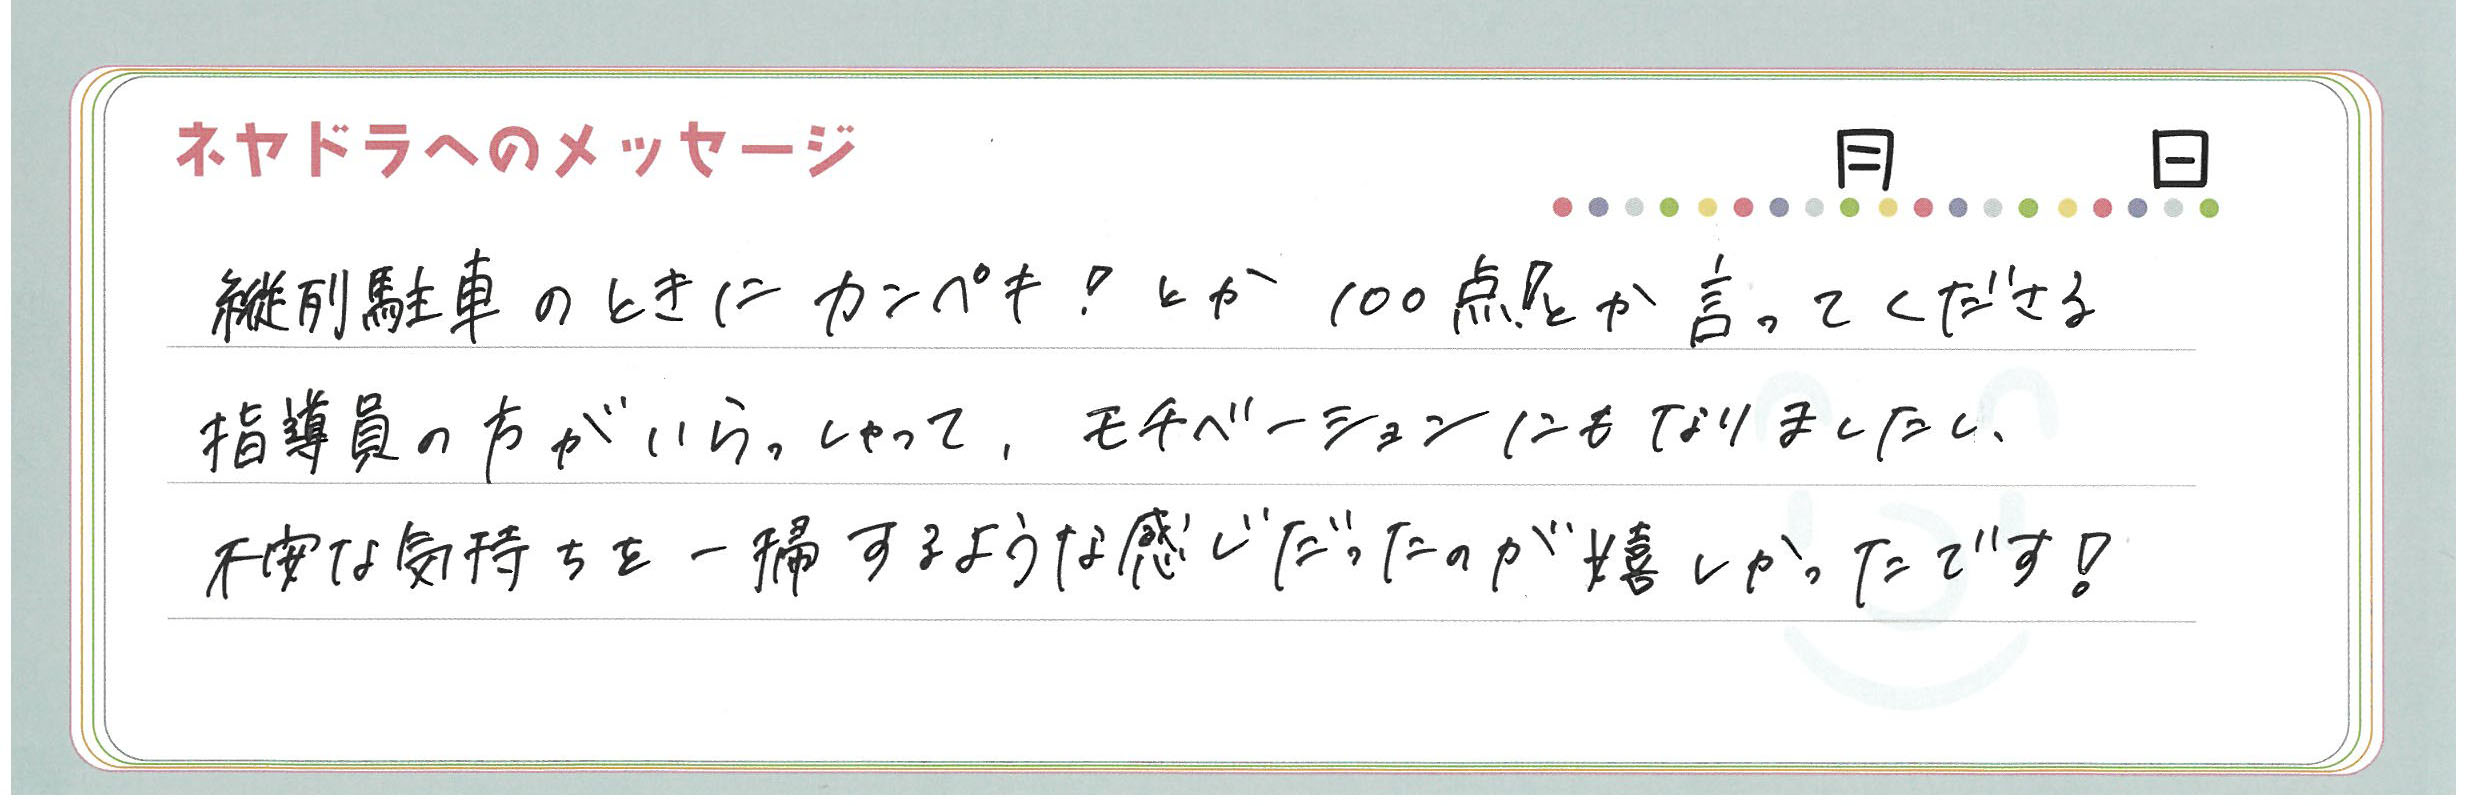 ネヤドラへのメッセージ
月 日
縦列駐車のときにカンペキ!とか 100点!とか言ってくださる
指導員の方がいらっしゃって、モチベーションにもなりましたし、
不安な気持ちを一掃するような感じだったのが嬉しかったです!